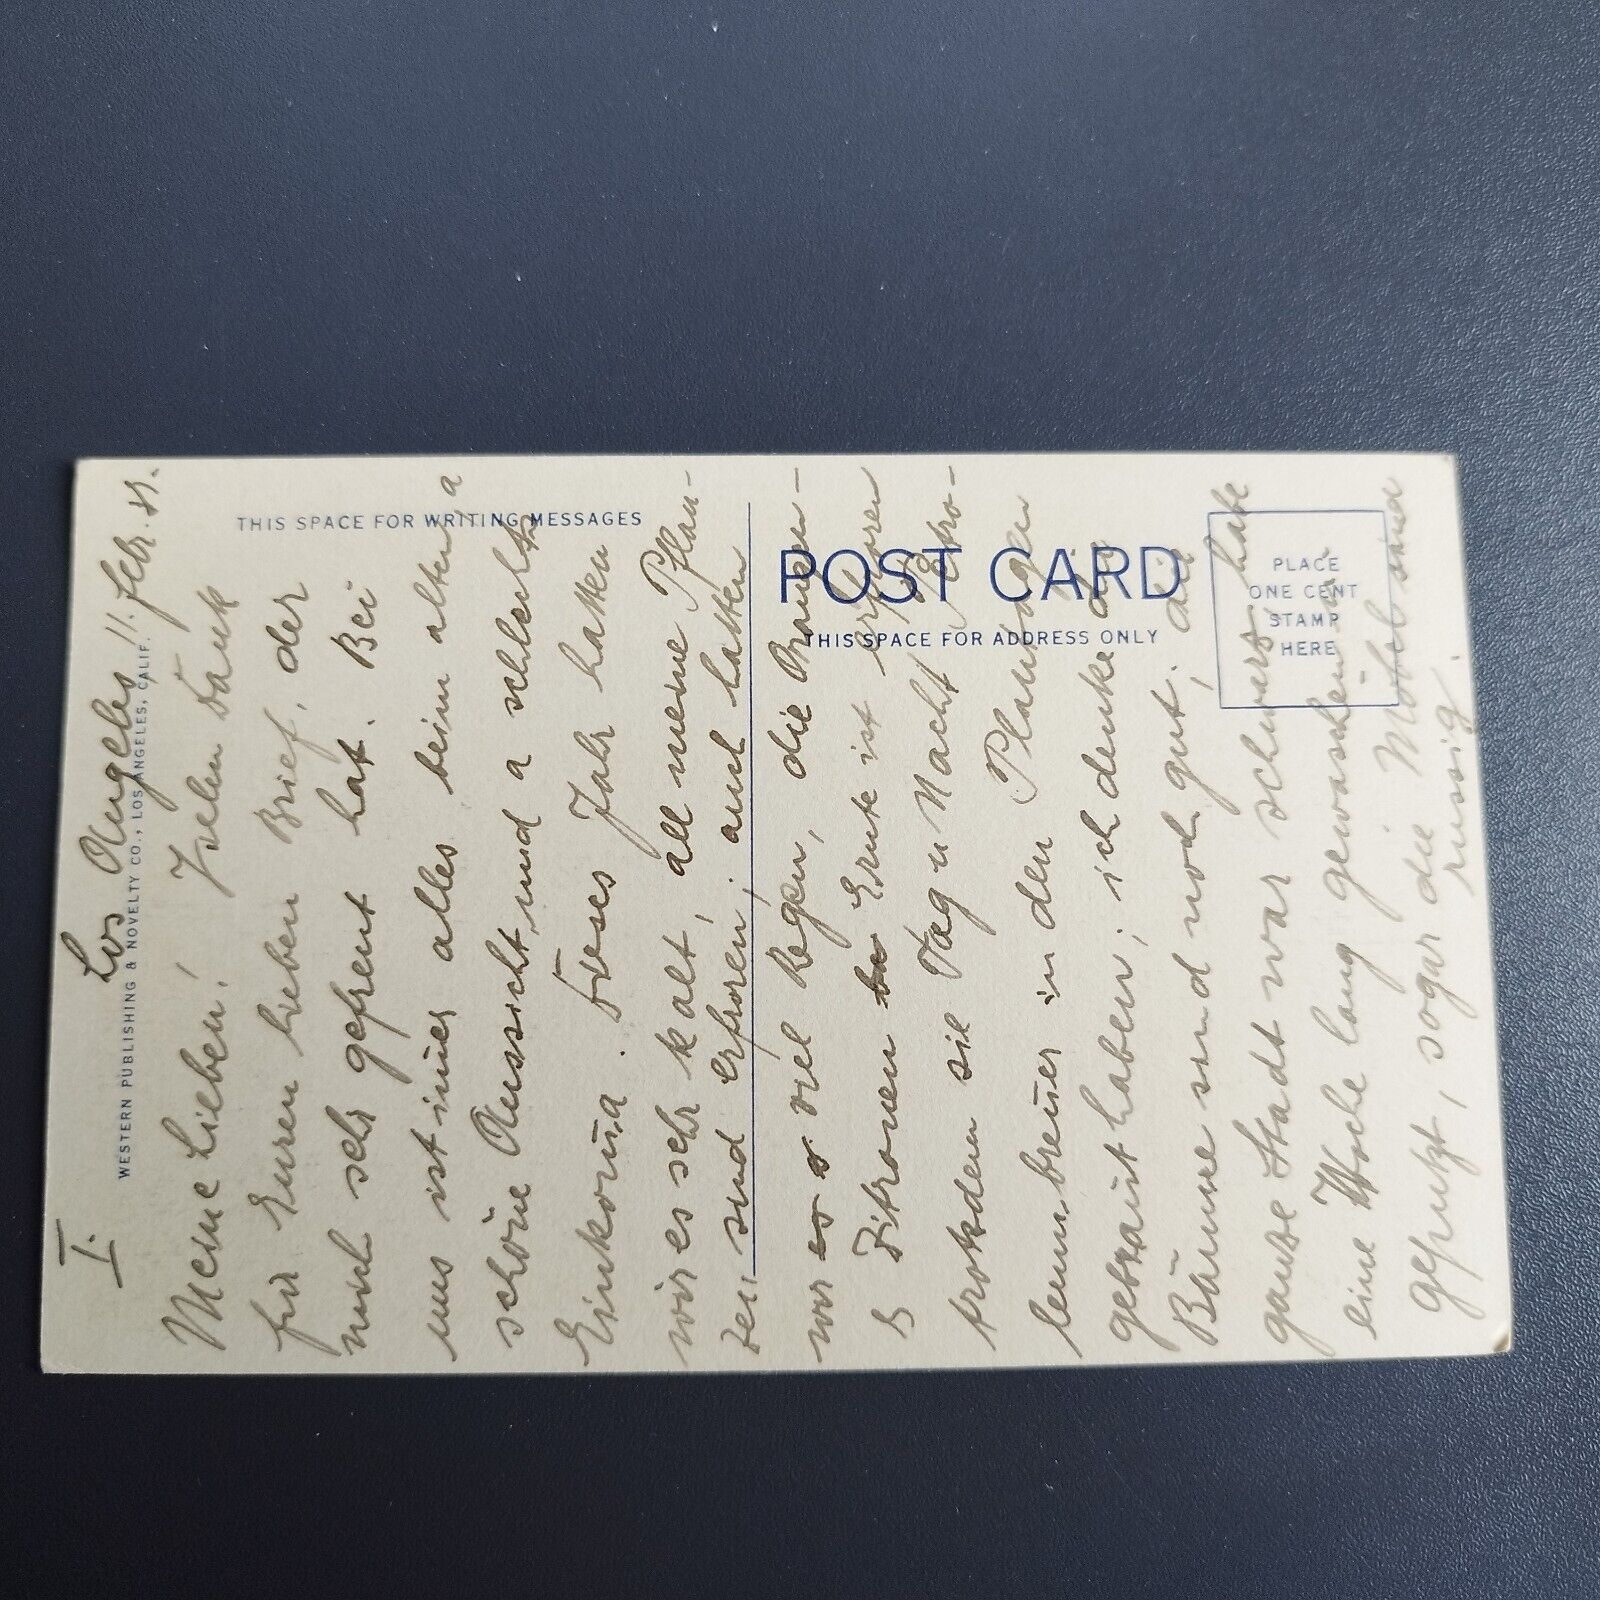 I. Los Angeles, 11. Febr. 49.
Meine Lieben! Vielen Dank
für Euren lieben Brief, der
mich sehr gefreut hat. Bei
uns ist im̅er alles beim alten, a
schöne Aussicht, und a schlechts
Einkom̅a. Dieses Jahr hatten
wir es sehr kalt, all meine Pflan-
zen sind erfroren; auch hatten
wir viel Regen, die Orangen-
& Zitronen Ernte ist erfroren
trotzdem sie Tag u Nacht Petro-
leumbren̅er in den Plantagen
gebraucht haben; ich denke die
Bäume sind noch gut. die
ganze Stadt war schwarz, habe
eine Woche lang gewaschen u
geputzt, sogar die Möbel sind
russig.
THIS SPACE FOR WRITING MESSAGES
POST CARD
THIS SPACE FOR ADDRESS ONLY
PLACE
ONE CENT
STAMP
HERE
WESTERN PUBLISHING & NOVELTY CO., LOS ANGELES, CALIF.